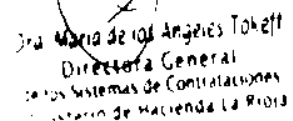 Dra. María de los Angeles Tokeff
Directora General
de los Sistemas de Contrataciones
Ministerio de Hacienda La Rioja